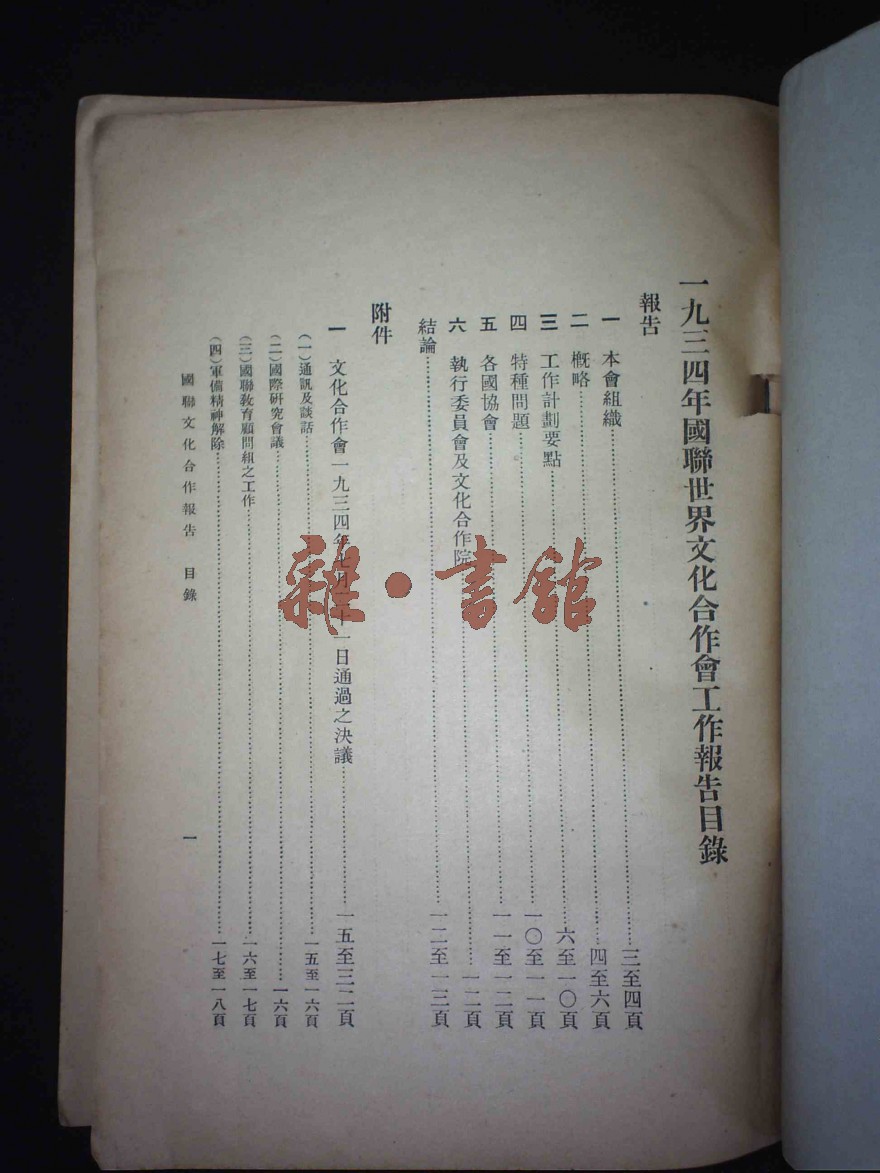 一九三四年國聯世界文化合作會工作報告目錄
報告
一 本會組織……三至四頁
二 概略……四至六頁
三 工作計劃要點……六至一〇頁
四 特種問題……一〇至一一頁
五 各國協會……一一至一二頁
六 執行委員會及文化合作院……一二頁
結論……一二至一三頁
附件
一 文化合作會一九三四年七月二十一日通過之決議……一五至三二頁
(一)通訊及談話……一五至一六頁
(二)國際研究會議……一六頁
(三)國聯教育顧問組之工作……一六至一七頁
(四)軍備精神解除……一七至一八頁
國聯文化合作報告 目錄
一
雜·書館